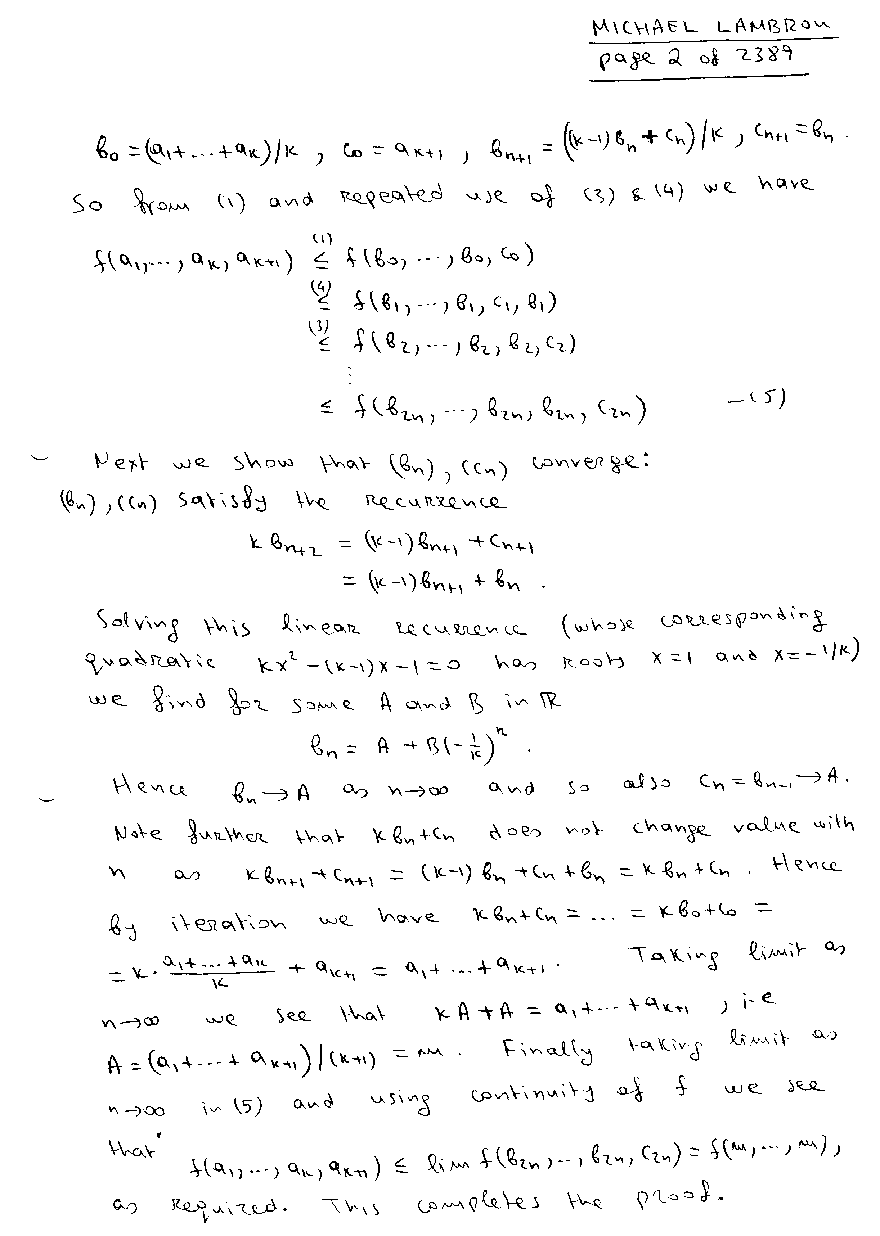 MICHAEL LAMBROU
page 2 of 2389
b₀ = (a₁+...+aₖ)/k , c₀ = aₖ₊₁ , bₙ₊₁ = ((k-1)bₙ + cₙ)/k , cₙ₊₁ = bₙ .
So from (1) and repeated use of (3) & (4) we have
f(a₁,..., aₖ, aₖ₊₁) ≤⁽¹⁾ f(b₀, ..., b₀, c₀)
≤⁽⁴⁾ f(b₁,...,b₁, c₁, b₁)
≤⁽³⁾ f(b₂,...,b₂, b₂, c₂)
⋮
≤ f(b₂ₙ, ..., b₂ₙ, b₂ₙ, c₂ₙ) —(5)
Next we show that (bₙ), (cₙ) converge:
(bₙ), (cₙ) satisfy the recurrence
k bₙ₊₂ = (k-1)bₙ₊₁ + cₙ₊₁
= (k-1)bₙ₊₁ + bₙ .
Solving this linear recurrence (whose corresponding
quadratic kx² - (k-1)x - 1 = 0 has roots x=1 and x=-1/k)
we find for some A and B in ℝ
bₙ = A + B(-1/k)ⁿ .
Hence bₙ → A as n→∞ and so also cₙ = bₙ₋₁ → A.
Note further that kbₙ+cₙ does not change value with
n as kbₙ₊₁ + cₙ₊₁ = (k-1)bₙ + cₙ + bₙ = kbₙ + cₙ . Hence
by iteration we have kbₙ+cₙ = ... = kb₀+c₀ =
= k · (a₁+...+aₖ)/k + aₖ₊₁ = a₁+...+aₖ₊₁ . Taking limit as
n→∞ we see that kA+A = a₁+...+aₖ₊₁ , i.e
A = (a₁+...+aₖ₊₁)/(k+1) = m . Finally taking limit as
n→∞ in (5) and using continuity of f we see
that
f(a₁,..., aₖ, aₖ₊₁) ≤ lim f(b₂ₙ,..., b₂ₙ, c₂ₙ) = f(m,..., m),
as required. This completes the proof.